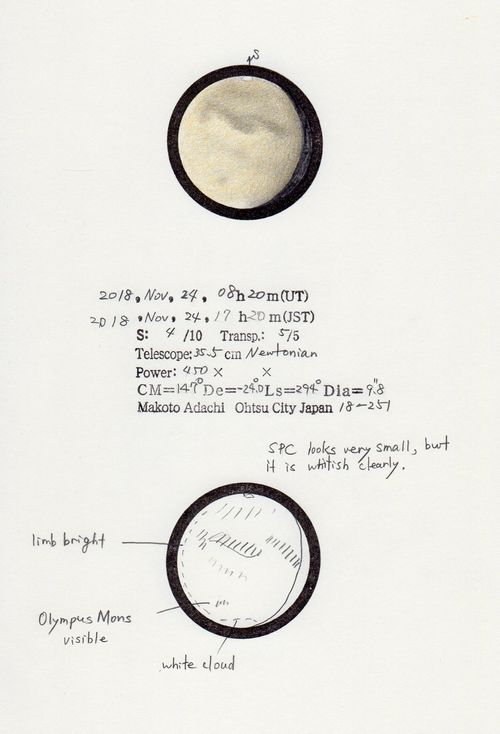 S
2018, Nov, 24, 08h20m(UT)
2018, Nov, 24, 17h20m(JST)
S: 4/10 Transp.: 5/5
Telescope:35.5 cm Newtonian
Power: 450× ×
CM=147° De=-24.0 Ls=294° Dia=9".8
Makoto Adachi Ohtsu City Japan 18-251
SPC looks very small, but
it is whitish clearly.
limb bright
Olympus Mons
visible
white cloud